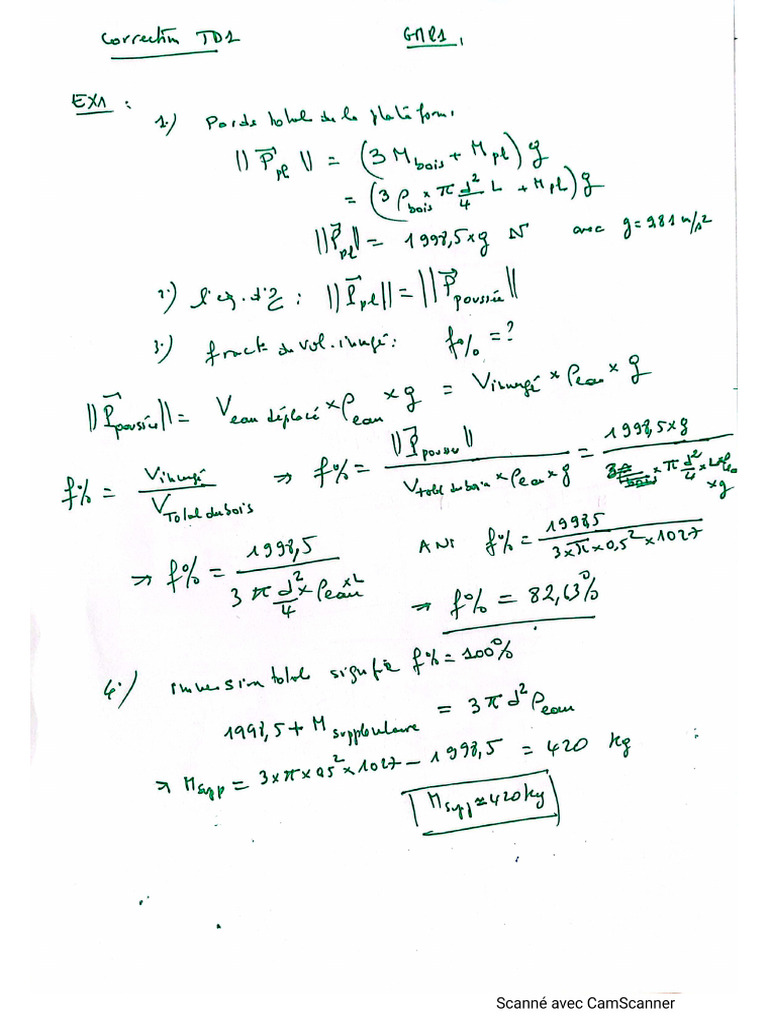 Correction TD1 GMP1,
EX1 :
1.) Poids total de la plateform.
||P⃗pl|| = (3 Mbois + Mpl) g
= (3 ρbois × π d²/4 L + Mpl) g
||P⃗pl|| = 1998,5 × g N avec g = 9,81 m/s²
2.) l'eq. d'Σ : ||P⃗pl|| = ||P⃗poussée||
3.) fract. du vol. immergé : f% = ?
||P⃗poussée|| = Veau déplacé × ρeau × g = Vimmergé × ρeau × g
f% = Vimmergé / VTotal du bois ⇒ f% = ||P⃗poussée|| / (Vtotal du bois × ρeau × g) = 1998,5 × g / (3 × π d²/4 × L × ρeau × g)
⇒ f% = 1998,5 / (3 π d²/4 × ρeau × L) AN: f% = 1998,5 / (3 × π × 0,5² × 1027)
⇒ f% = 82,63%
4.) immersion total signifie f% = 100%
1998,5 + Msupplémentaire = 3 π d² ρeau
⇒ Msupp = 3 × π × 0,5² × 1027 − 1998,5 = 420 kg
Msupp ≈ 420 kg
Scanné avec CamScanner